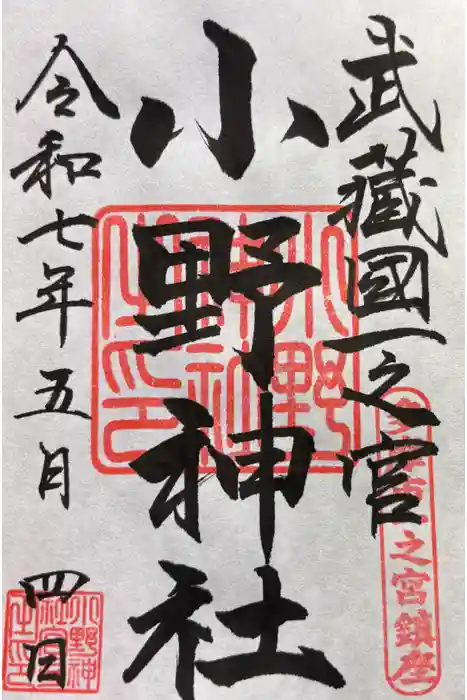 武蔵國一之宮
小野神社
令和七年五月四日
小野神社之印
之宮鎮座
小野神社宮司之印